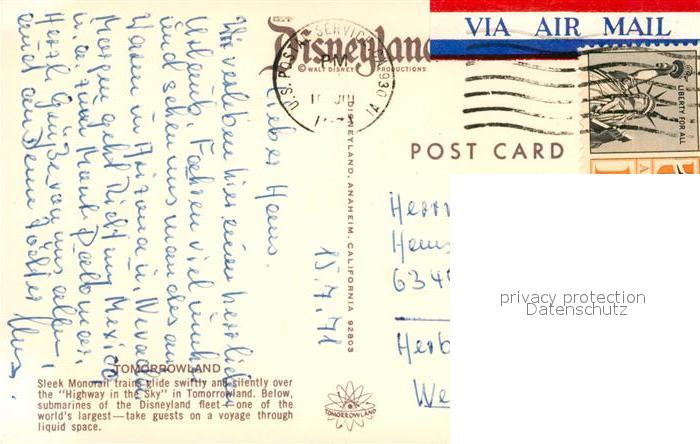 VIA AIR MAIL
Disneyland
© WALT DISNEY PRODUCTIONS
U.S. POSTAL SERVICE
PM
LIBERTY FOR ALL
POST CARD
DISNEYLAND, ANAHEIM, CALIFORNIA 92803
15.7.71
Lieber Hans.
Wir verleben hier einen herrlichen
Urlaub. Fahren viel umher
und sehen uns manches an.
Waren in Arizona u. Nevada
Morgen geht Richtung Mexico
u. a. zum Mount Palomar.
Herzl. Grüße von uns allen
und
Herrn
Hans
634
Herb
We
privacy protection
Datenschutz
TOMORROWLAND
Sleek Monorail trains glide swiftly and silently over
the "Highway in the Sky" in Tomorrowland. Below,
submarines of the Disneyland fleet—one of the
world's largest—take guests on a voyage through
liquid space.
TOMORROWLAND